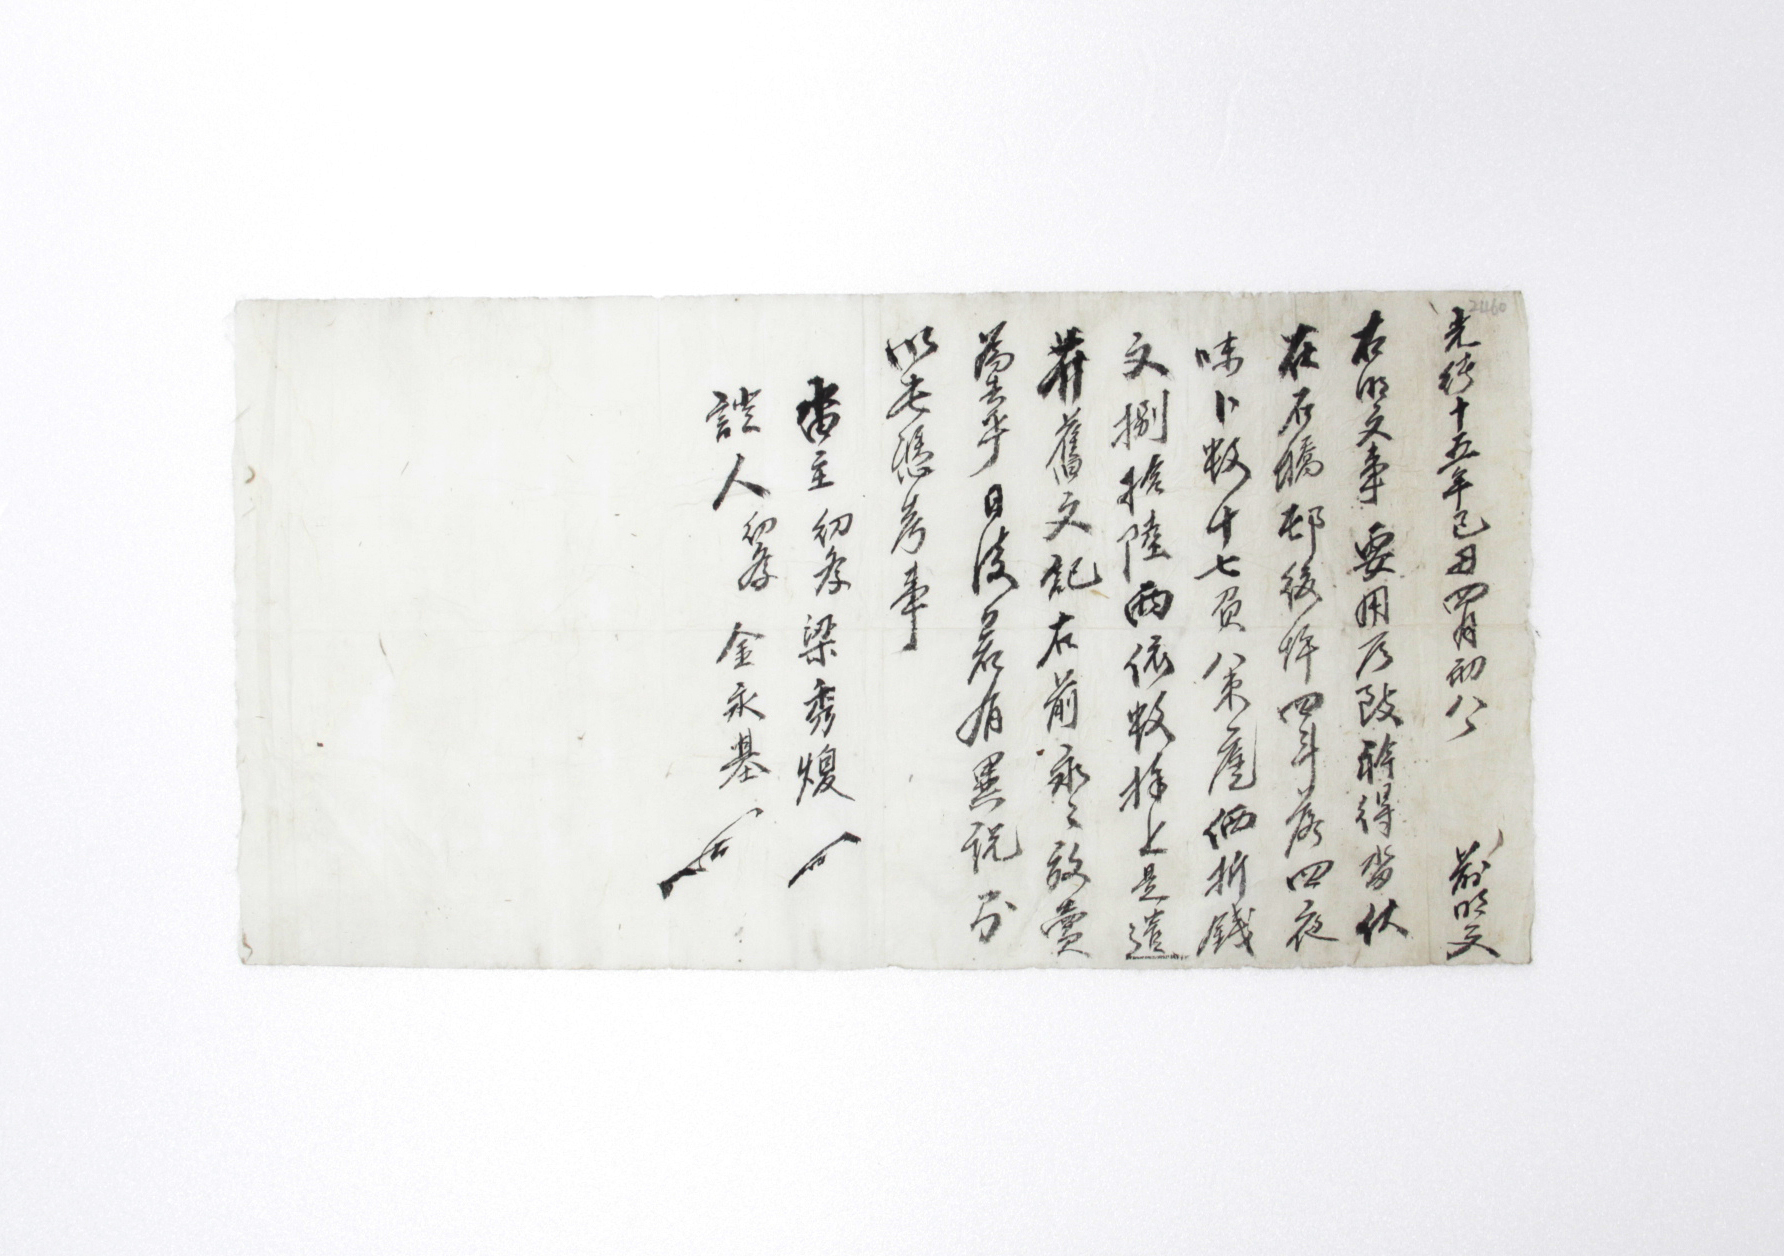 24160
光緖十五年己丑四月初八 前明文
右明文事要用所致幹得畓伏
在石橋邨後坪四斗落四夜
味卜數十七負八束廤価折錢
文捌拾陸兩依數捧上是遣
幷舊文記右前永〻放賣
爲去乎日後若有異說 以
此卞憑考事
畓主 幼學 梁秀煥
證人 幼學 金永基